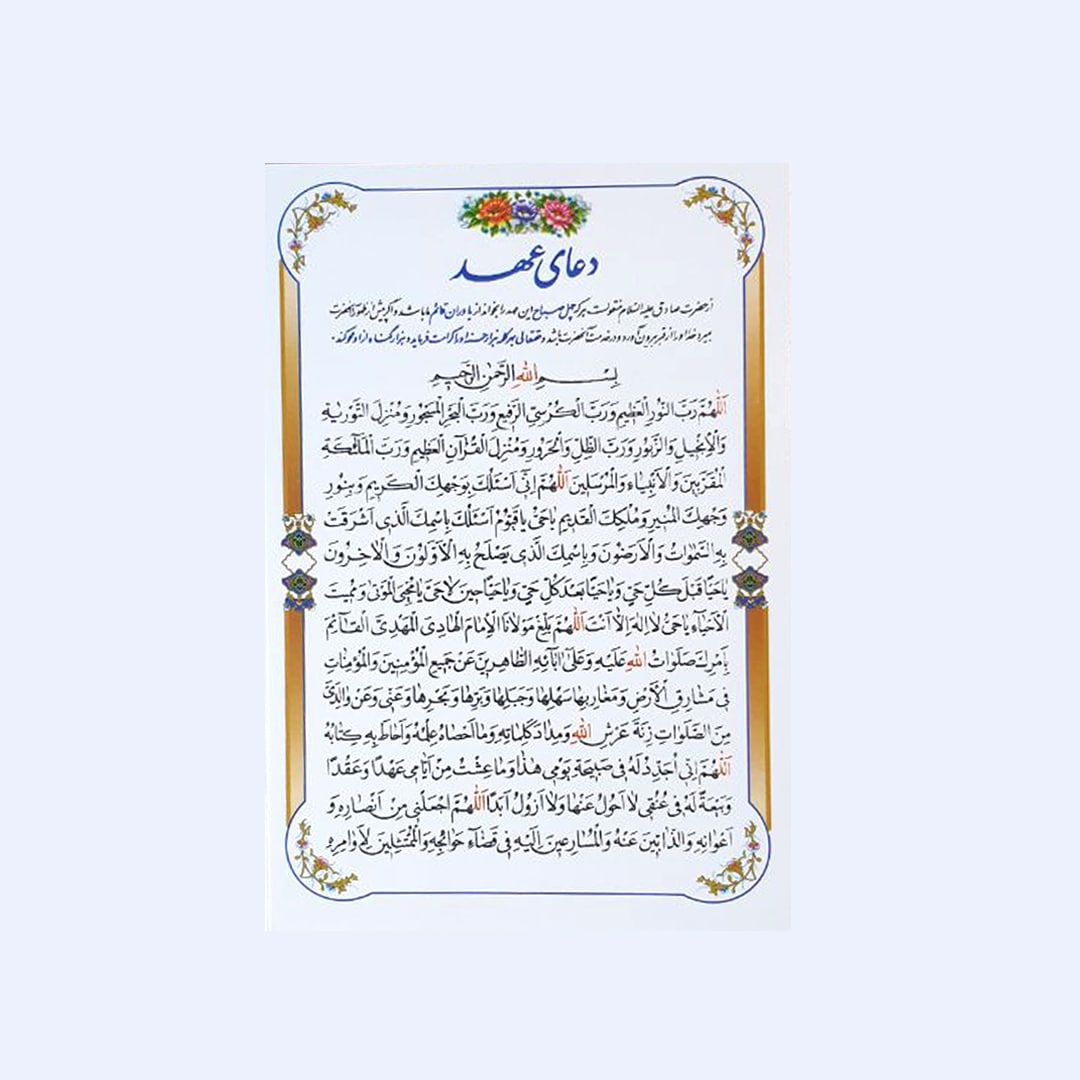 دعای عهد
از حضرت صادق علیه السلام منقولست هر که چهل صباح این عهد را بخواند از یاوران قائم ما باشد و اگر پیش از ظهور آنحضرت
بمیرد خدا او را از قبر بیرون آورد و در خدمت آنحضرت باشد و حقتعالی بهر کلمه هزار حسنه او را کرامت فرماید و هزار گناه از او محو کند.
بِسْمِ اللهِ الرَّحْمٰنِ الرَّحِيمِ
اَللّٰهُمَّ رَبَّ النُّورِ الْعَظِيمِ وَرَبَّ الْكُرْسِيِّ الرَّفِيعِ وَرَبَّ الْبَحْرِ الْمَسْجُورِ وَمُنْزِلَ التَّوْرٰيةِ
وَالْاِنْجِيلِ وَالزَّبُورِ وَرَبَّ الظِّلِّ وَالْحَرُورِ وَمُنْزِلَ الْقُرْآنِ الْعَظِيمِ وَرَبَّ الْمَلٰئِكَةِ
الْمُقَرَّبِينَ وَالْاَنْبِيٰاءِ وَالْمُرْسَلِينَ اَللّٰهُمَّ اِنّي اَسْئَلُكَ بِوَجْهِكَ الْكَرِيمِ وَبِنُورِ
وَجْهِكَ الْمُنِيرِ وَمُلْكِكَ الْقَدِيمِ يٰاحَيُّ يٰاقَيُّومُ اَسْئَلُكَ بِاسْمِكَ الَّذي اَشْرَقَتْ
بِهِ السَّمٰوٰاتُ وَالْاَرَضُونَ وَبِاسْمِكَ الَّذي يَصْلَحُ بِهِ الْاَوَّلُونَ وَالْاٰخِرُونَ
يٰاحَيًّا قَبْلَ كُلِّ حَيٍّ وَيٰاحَيًّا بَعْدَ كُلِّ حَيٍّ وَيٰاحَيًّا حِينَ لٰاحَيَّ يٰامُحْيِيَ الْمَوْتىٰ وَمُمِيتَ
الْاَحْيٰاءِ يٰاحَيُّ لٰااِلٰهَ اِلّٰا اَنْتَ اَللّٰهُمَّ بَلِّغْ مَوْلٰانَا الْاِمٰامَ الْهٰادِيَ الْمَهْدِيَّ الْقٰآئِمَ
بِاَمْرِكَ صَلَوٰاتُ اللهِ عَلَيْهِ وَعَلىٰ اٰبٰآئِهِ الطّٰاهِرِينَ عَنْ جَمِيعِ الْمُؤْمِنِينَ وَالْمُؤْمِنٰاتِ
فِي مَشٰارِقِ الْاَرْضِ وَمَغٰارِبِهٰا سَهْلِهٰا وَجَبَلِهٰا وَبَرِّهٰا وَبَحْرِهٰا وَعَنّي وَعَنْ وٰالِدَيَّ
مِنَ الصَّلَوٰاتِ زِنَةَ عَرْشِ اللهِ وَمِدٰادَ كَلِمٰاتِهِ وَمٰا اَحْصٰاهُ عِلْمُهُ وَاَحٰاطَ بِهِ كِتٰابُهُ
اَللّٰهُمَّ اِنّي اُجَدِّدُ لَهُ فِي صَبِيحَةِ يَوْمي هٰذٰا وَمٰا عِشْتُ مِنْ اَيّٰامي عَهْدًا وَعَقْدًا
وَبَيْعَةً لَهُ فِي عُنُقي لٰا اَحُولُ عَنْهٰا وَلٰا اَزُولُ اَبَدًا اَللّٰهُمَّ اجْعَلْني مِنْ اَنْصٰارِهِ وَ
اَعْوٰانِهِ وَالذّٰابّينَ عَنْهُ وَالْمُسٰارِعينَ اِلَيْهِ فِي قَضٰآءِ حَوٰائِجِهِ وَالْمُمْتَثِلينَ لِاَوٰامِرِهِ